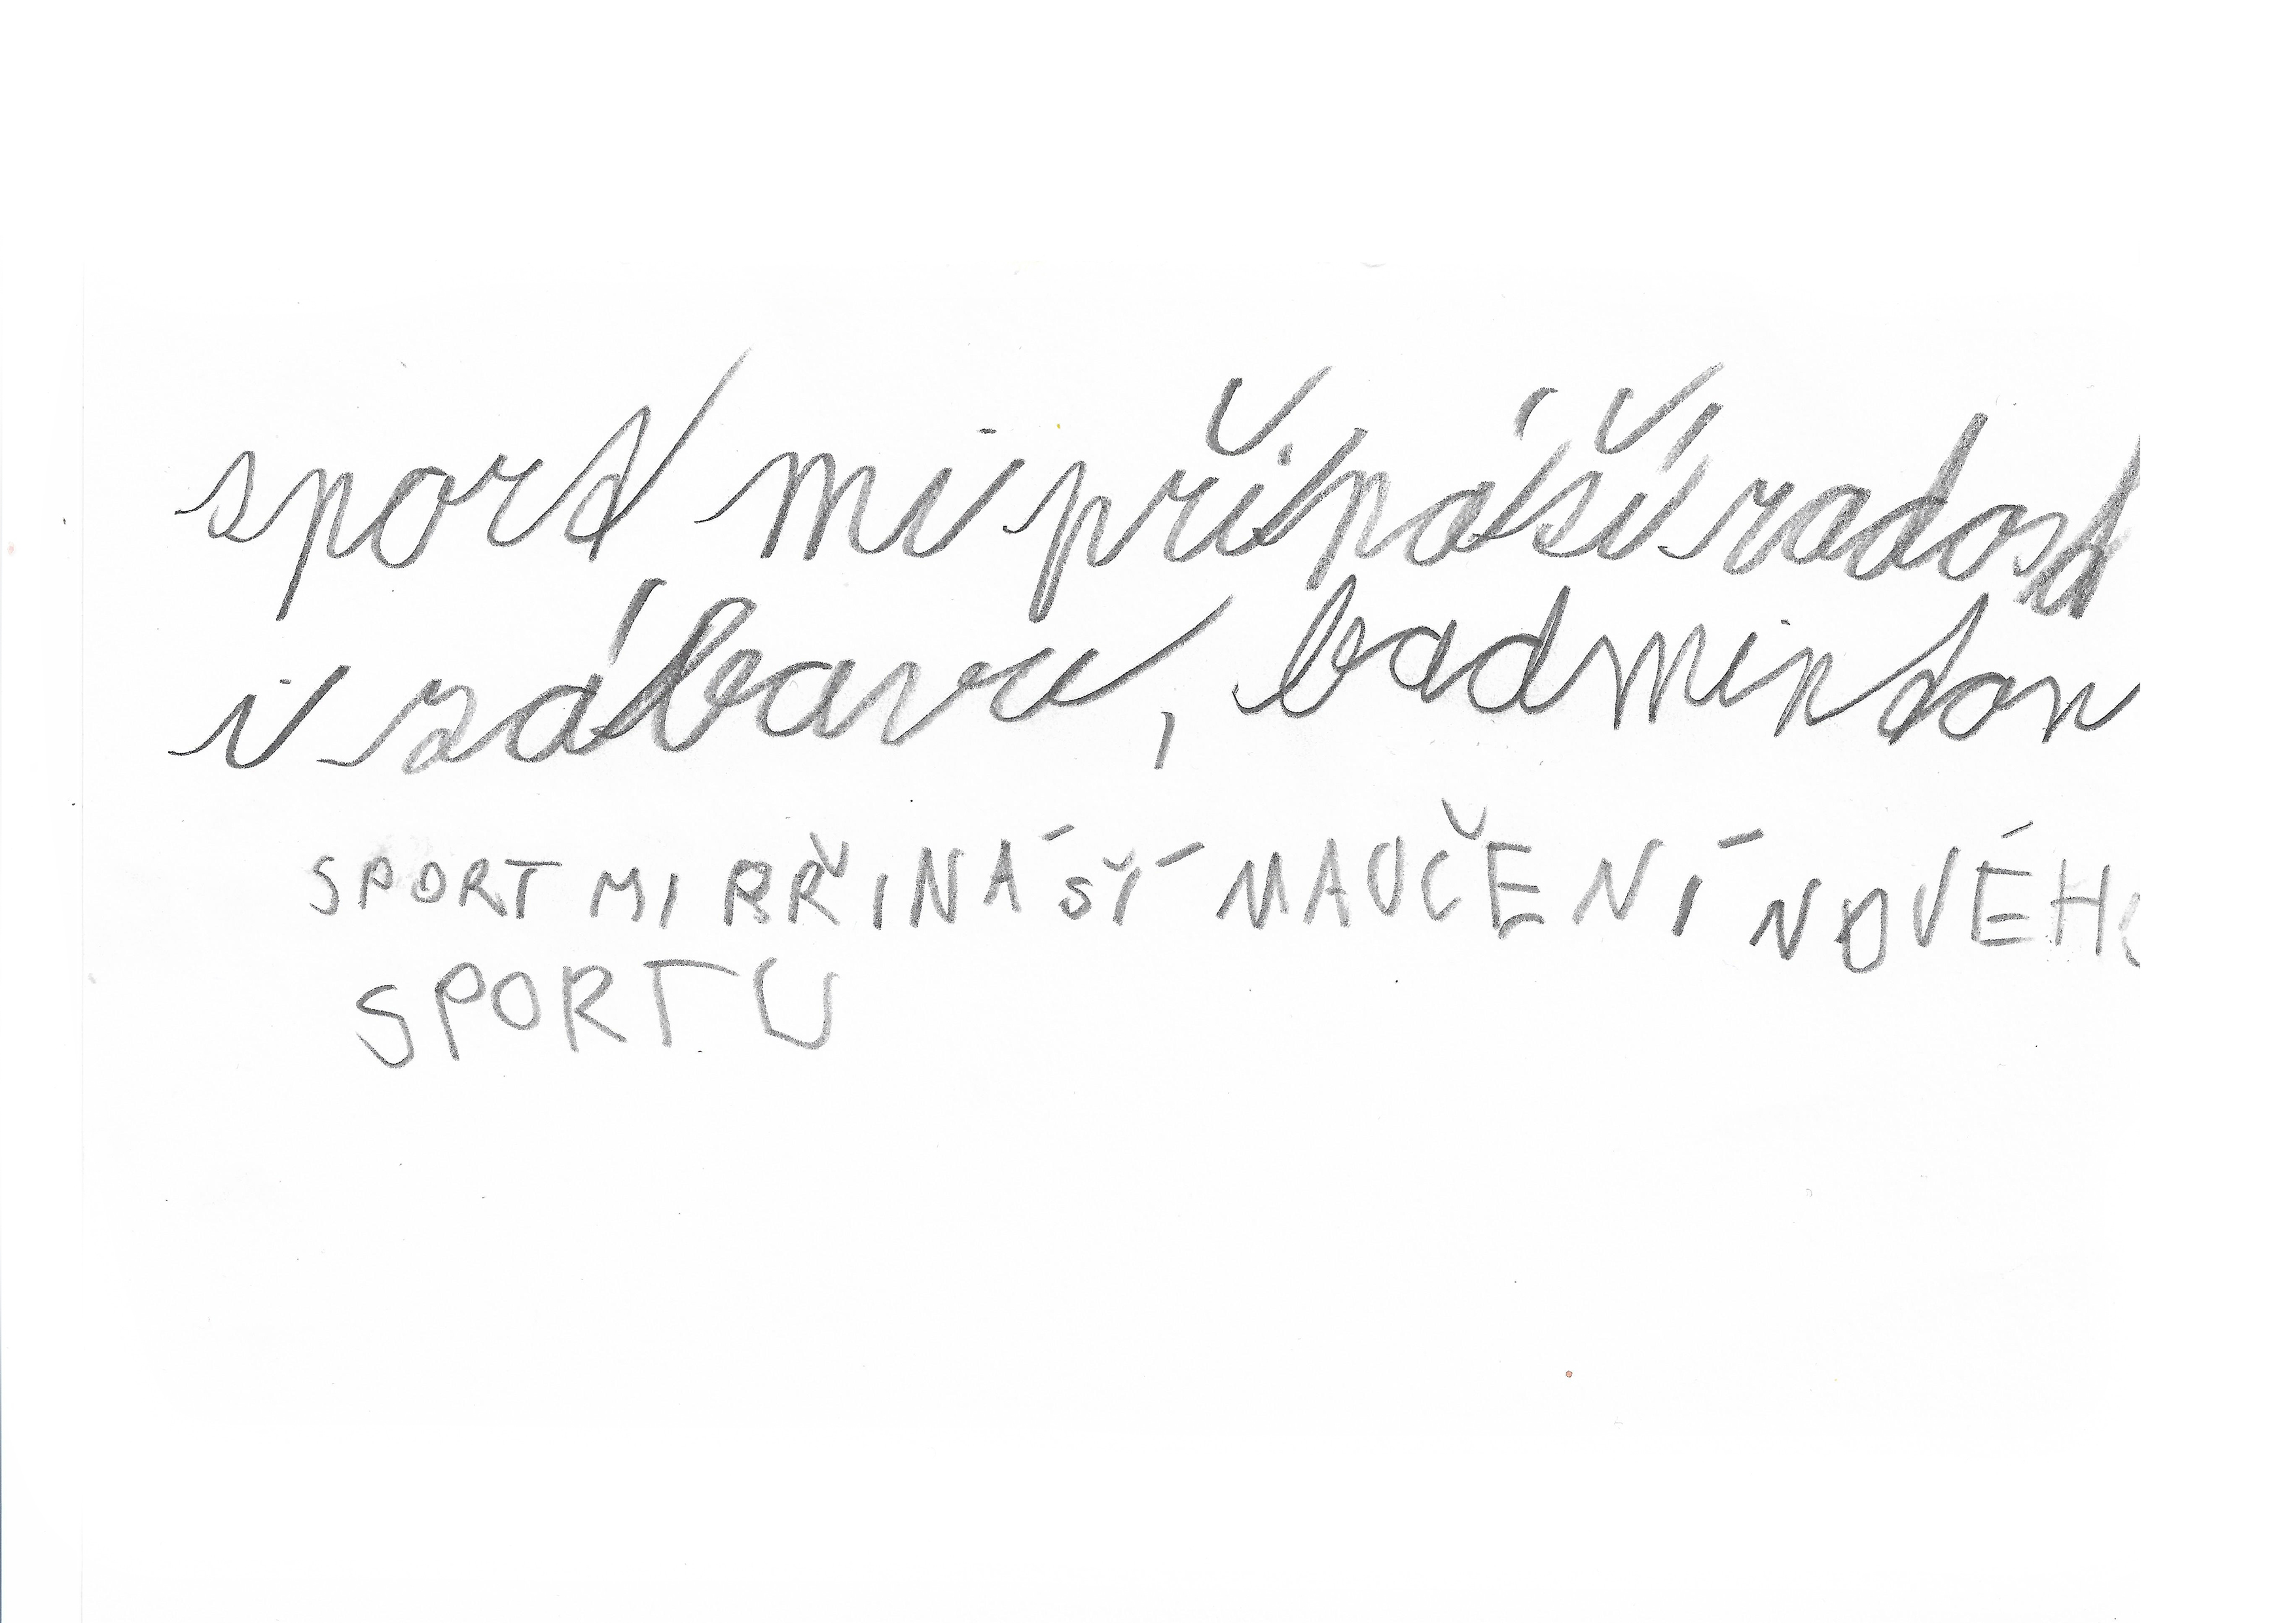 sport mi přináší radost
i zábavu, badminton
SPORT MI PŘINÁŠÍ NAUČENÍ NOVÉHO
SPORTU